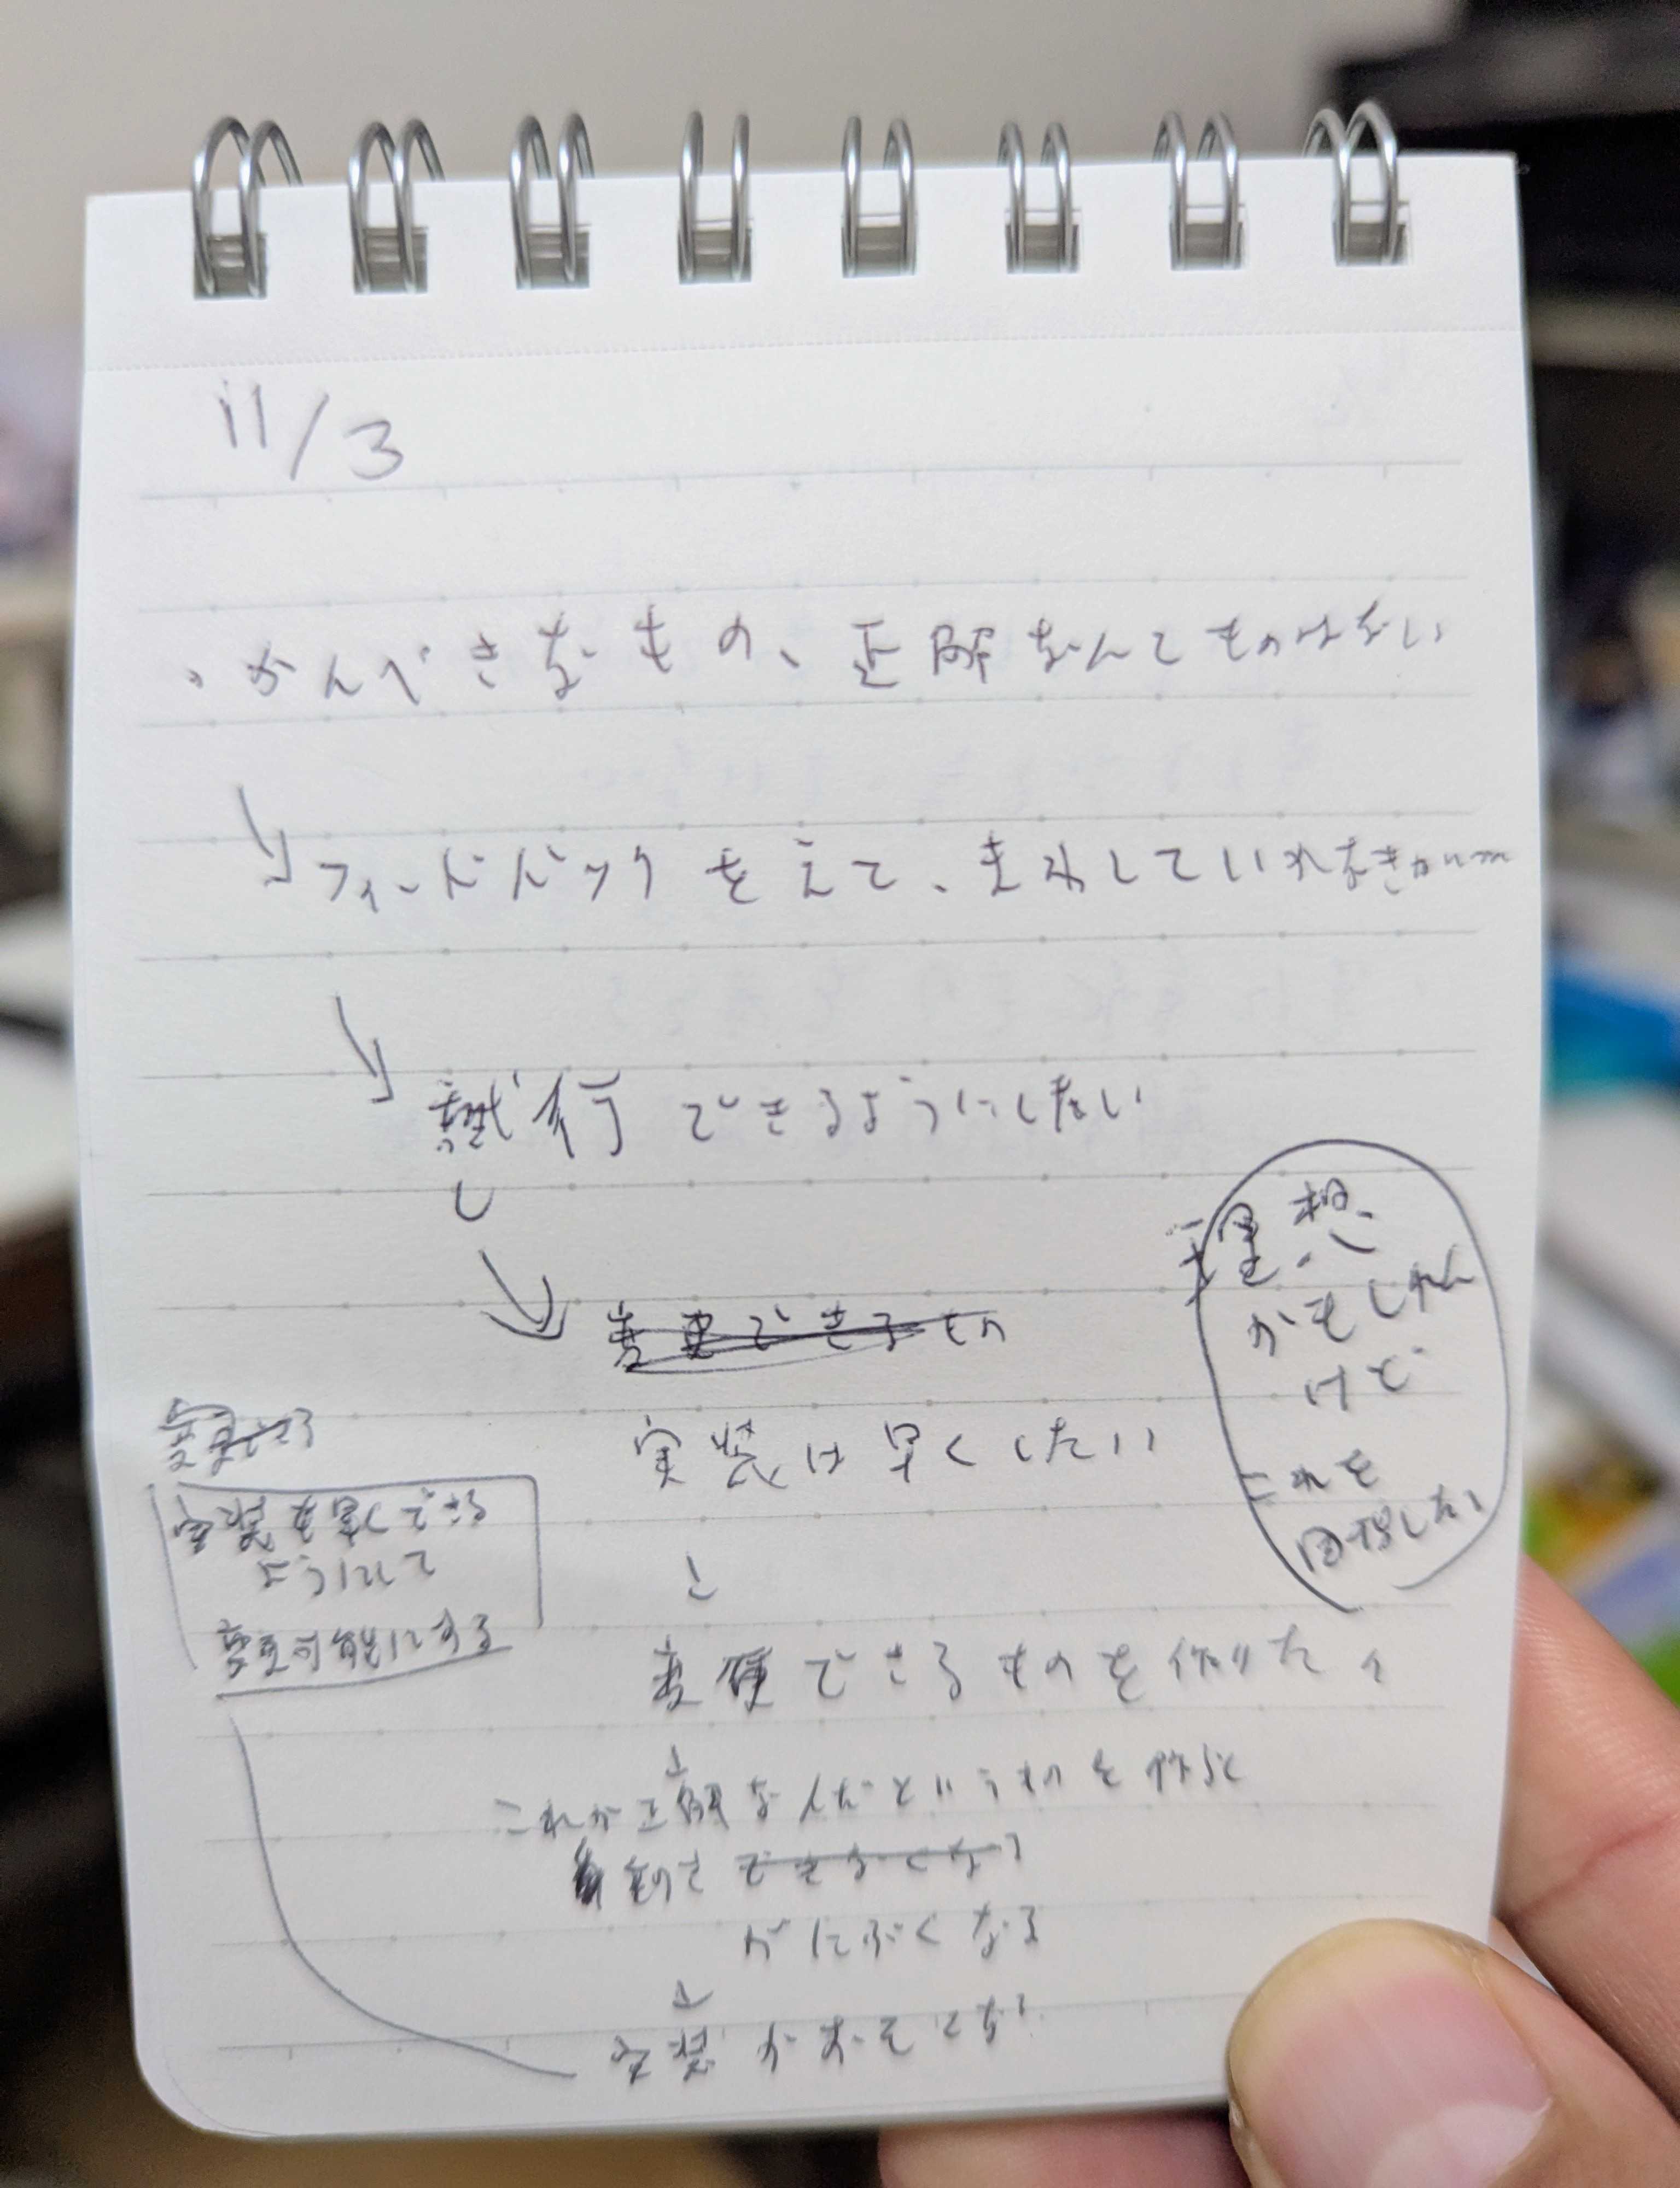 11/3
・かんぺきなもの、正解なんてものはない
フィードバックをえて、まわしていれ
試行できるようにしたい
変更できるもの
理想
かもしれん
けど
これを
目指したい
実装は早くしたい
変更できる
実装も早くできる
ようにして
変更可能にする
と
変更できるものを作りたい
これが正解なんだというものを作ると
できなくなる
がにぶくなる
実装がおそくなる